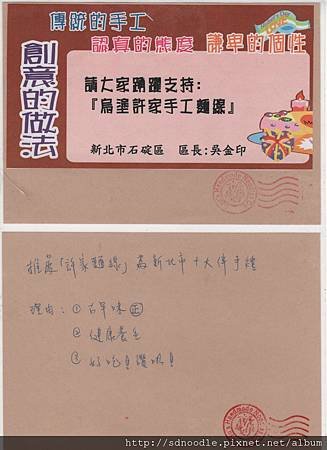 傳統的手工
認真的態度
謙卑的個性
創意的做法
請大家踴躍支持:
『烏塗許家手工麵線』
新北市石碇區 區長:吳金印
推薦「許家麵線」為新北市十大伴手禮
理由: ① 古早味 正
② 健康養生
③ 好吃且讚哦!
http://sdnoodle.pixnet.net/album